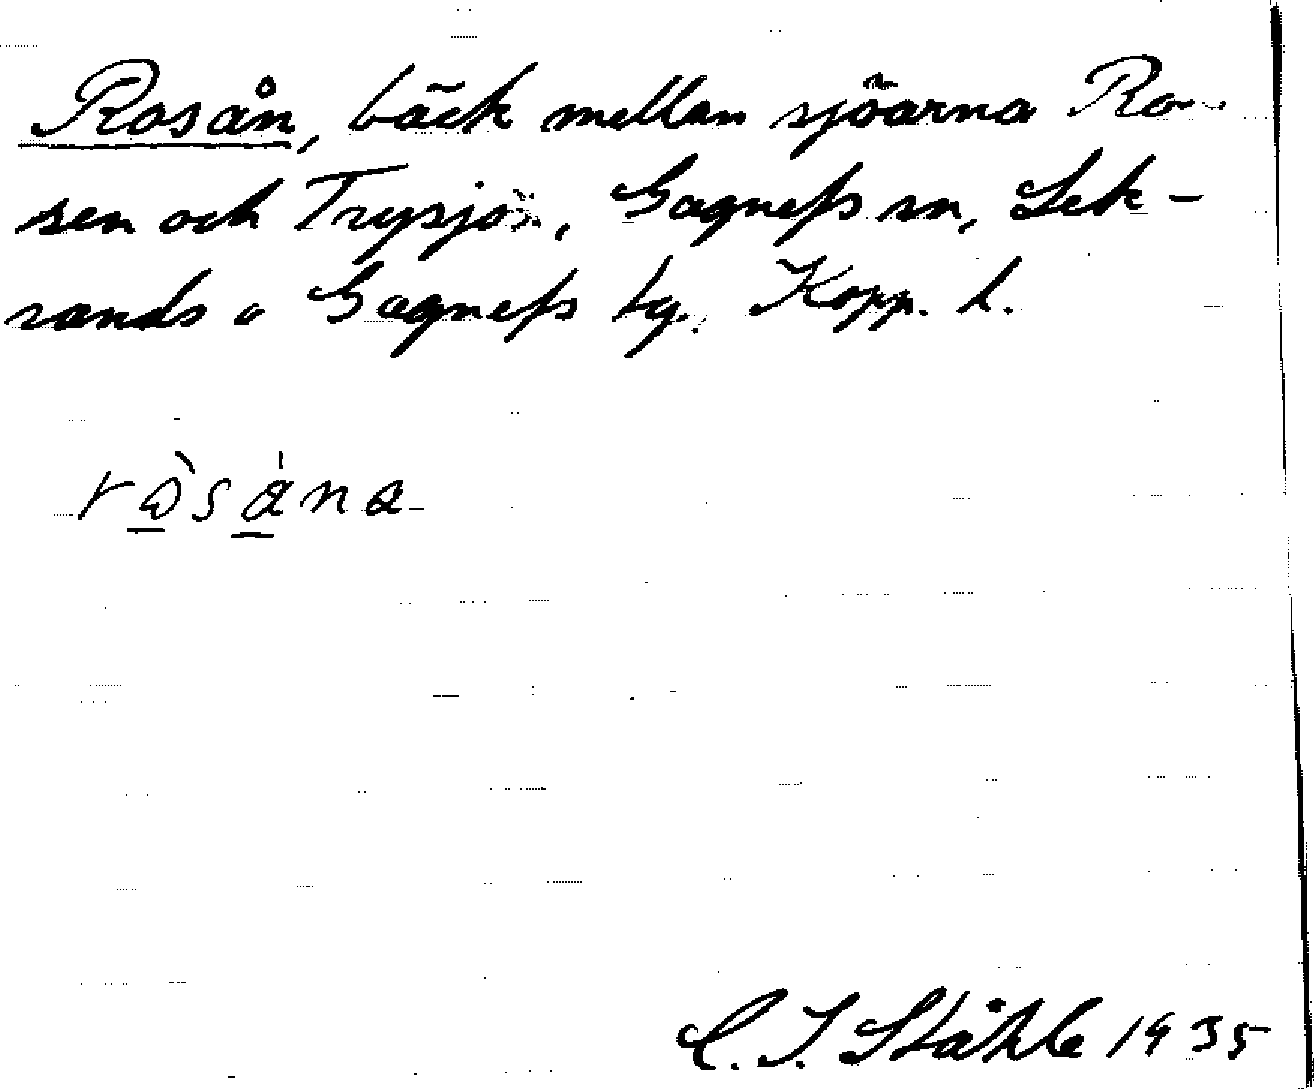 Rosån, bäck mellan sjöarna Ro-
sen och Trysjön, Gagnefs sn, Lek-
sands o Gagnefs tg. Kopp. l.
ròsána
C. I. Ståhle 1935